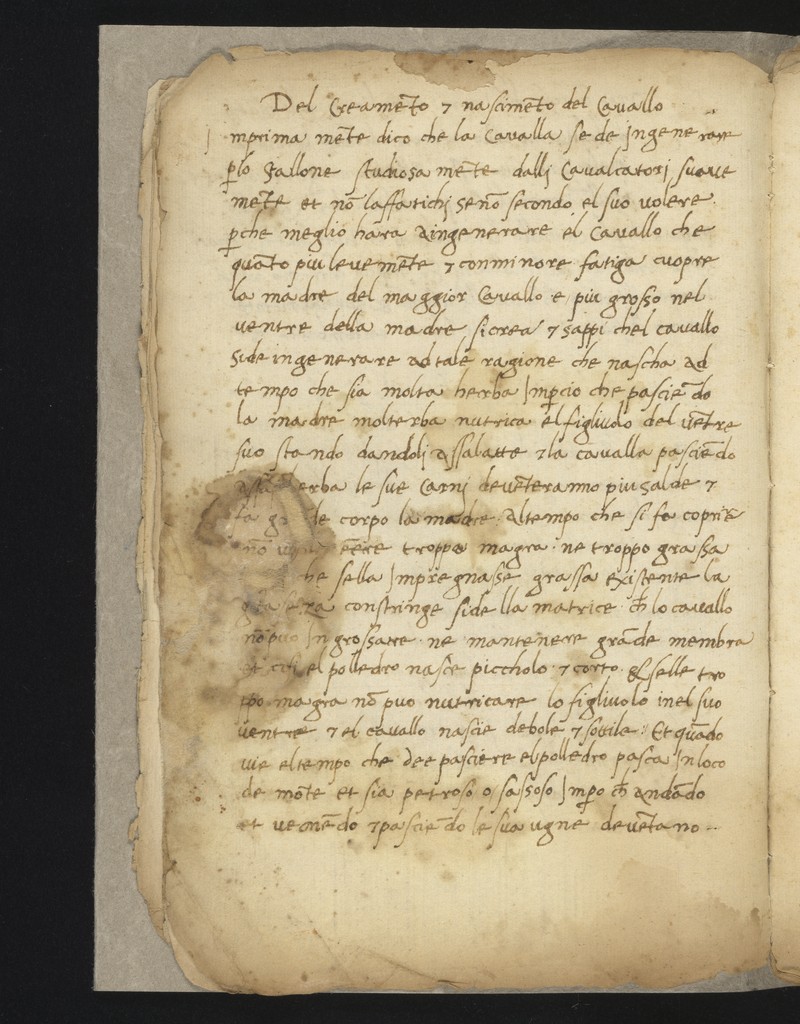 Del Creamēto ⁊ nascimēto del Cavallo
Imprima mēte dico che la Cavalla se de Ingenerare
ꝑlo stallone studiosa mēte dallj Cavalcatorj suave
mēte et nō laffatichj senō secondo el suo volere.
ꝑche meglio hara a ingenerare el Cavallo che
quāto piu levemēte ⁊ con minore fatiga cuopre
la madre del maggior Cavallo e piu grosso nel
ventre della madre si crea ⁊ sappi chel cavallo
si de ingenerare ad tale ragione che nascha ad
tempo che sia molta herba Impercio che pasciēdo
la madre molterba nutrica el figliuolo del vētre
suo stando dandolj assa latte ⁊ la cavalla pasciēdo
assa herba le sue Carnj devēteranno piu salde ⁊
fa grāde corpo la madre. Al tempo che si fa coprire
nō essere troppa magra. ne troppo grassa
che sella Impregnasse grassa existente la
constringe si de lla matrice. cħ lo cavallo
nō puo Ingrossare. ne mantenere grāde membra
et cosi el polledro nasce piccholo. ⁊ corto. Et selle tro
ppo magra nō puo nutricare lo figliuolo inel suo
ventre ⁊ el cavallo nascie debole ⁊ sottile: Et quādo
vie el tempo che dee pasciere el polledro pasca In loco
de mōte et sia petroso o sassoso Imꝑo cħ andādo
et venēdo ⁊ pasciēdo le sua ugne devētano..